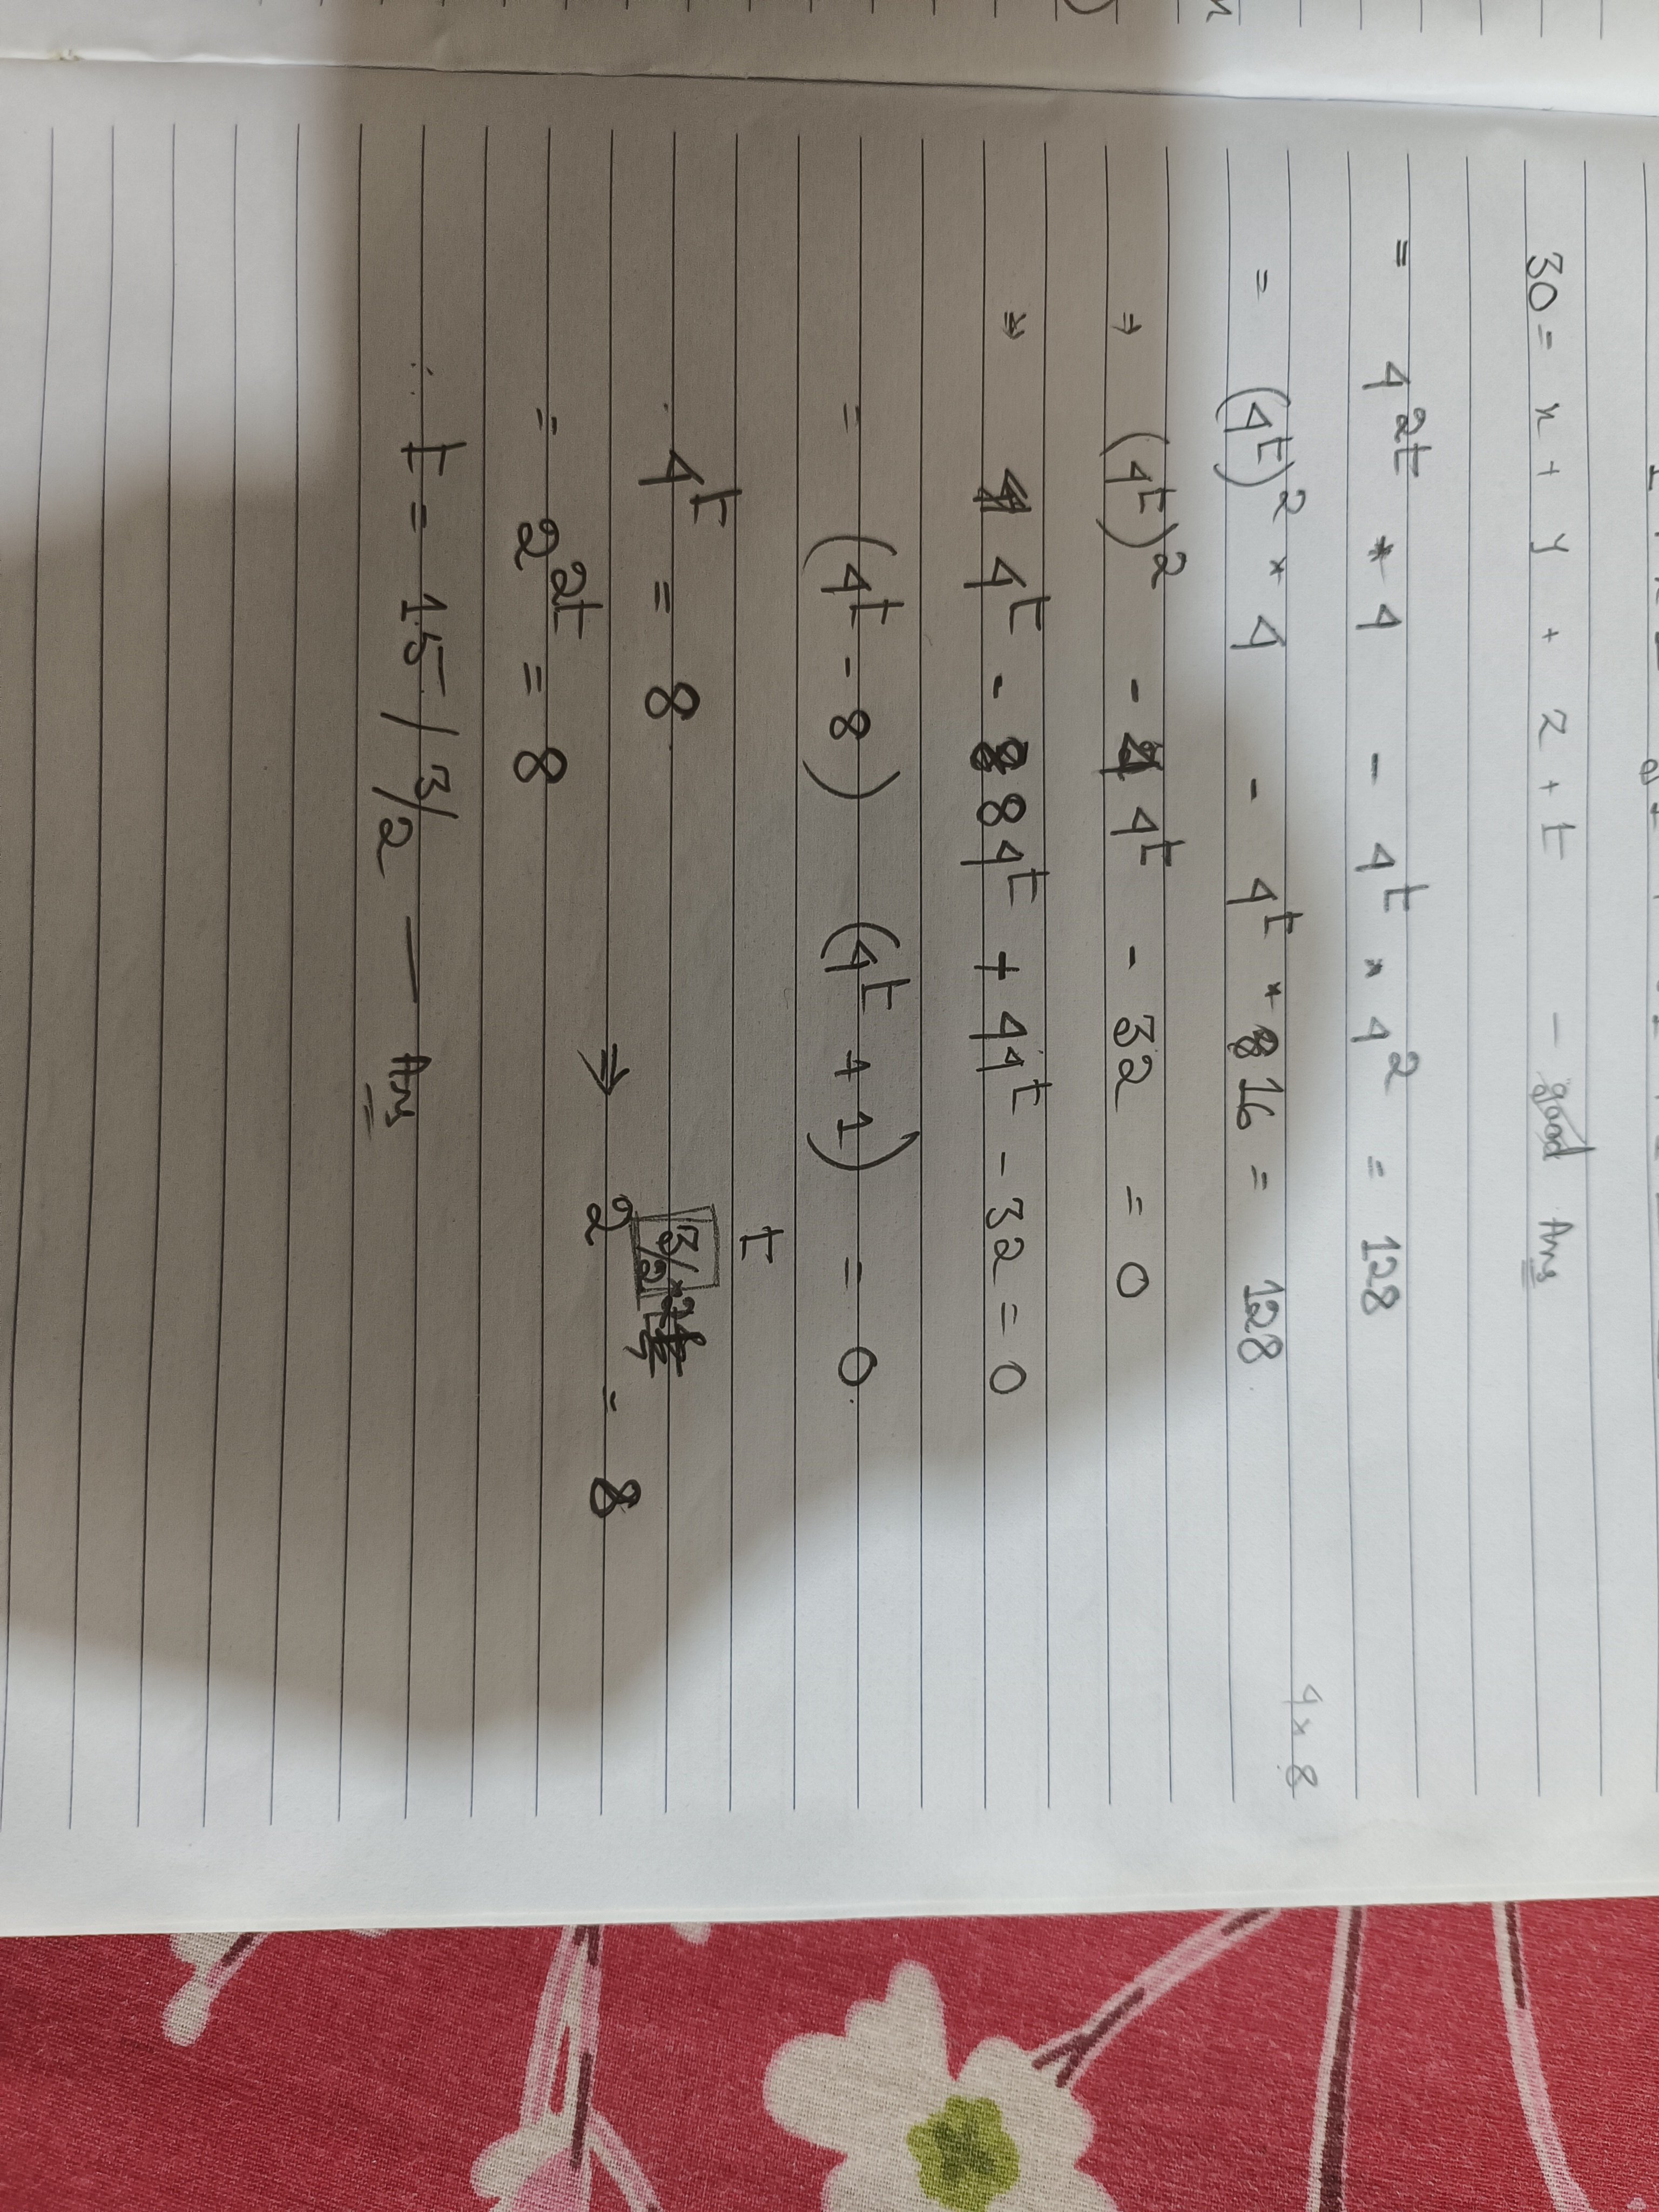 30 = x + y + z + t - good Ans
= 4^2t * 4 - 4^t × 4^2 = 128
4 × 8
= (4^t)^2 * 4 - 4^t * 16 = 128
⇒ (4^t)^2 - 4 4^t - 32 = 0
⇒ 4^t - 8 4^t + 4 4^t - 32 = 0
= (4^t - 8) (4^t + 1) = 0.
t
4^t = 8
⇒ 2^3/2 × = 8
= 2^2t = 8
∴ t = 1.5 / 3/2 — Ans